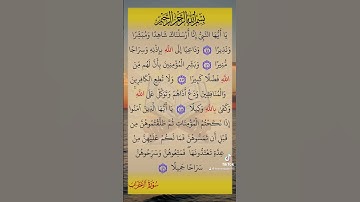 بِسْمِ اللَّهِ الرَّحْمَٰنِ الرَّحِيمِ
يَا أَيُّهَا النَّبِيُّ إِنَّا أَرْسَلْنَاكَ شَاهِدًا وَمُبَشِّرًا
وَنَذِيرًا وَدَاعِيًا إِلَى اللَّهِ بِإِذْنِهِ وَسِرَاجًا
مُنِيرًا وَبَشِّرِ الْمُؤْمِنِينَ بِأَنَّ لَهُمْ مِنَ
اللَّهِ فَضْلًا كَبِيرًا وَلَا تُطِعِ الْكَافِرِينَ
وَالْمُنَافِقِينَ وَدَعْ أَذَاهُمْ وَتَوَكَّلْ عَلَى اللَّهِ
وَكَفَى بِاللَّهِ وَكِيلًا يَا أَيُّهَا الَّذِينَ آمَنُوا
إِذَا نَكَحْتُمُ الْمُؤْمِنَاتِ ثُمَّ طَلَّقْتُمُوهُنَّ مِنْ
قَبْلِ أَنْ تَمَسُّوهُنَّ فَمَا لَكُمْ عَلَيْهِنَّ مِنْ
عِدَّةٍ تَعْتَدُّونَهَا فَمَتِّعُوهُنَّ وَسَرِّحُوهُنَّ
سَرَاحًا جَمِيلًا
سُورَةُ الأَحْزَابِ